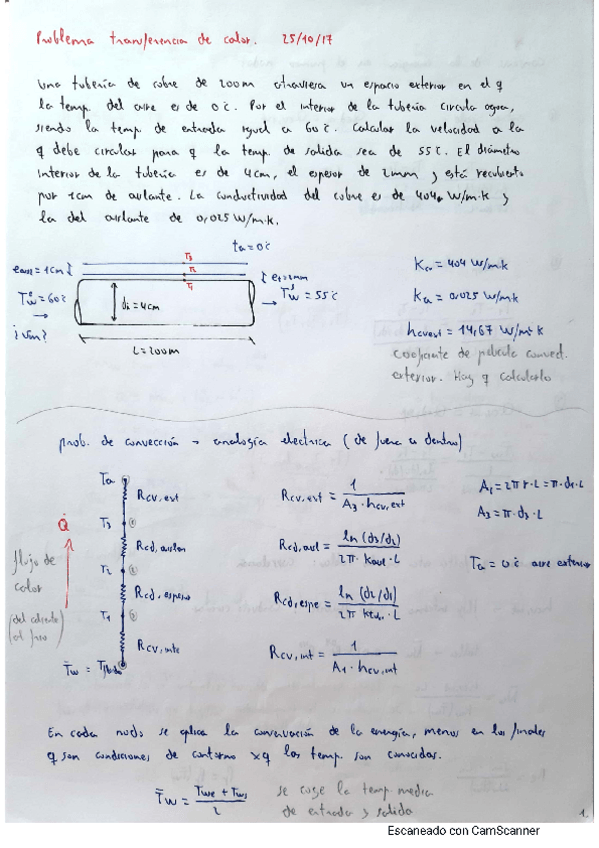 Problema transferencia de calor. 25/10/17
Una tubería de cobre de 200m atraviesa un espacio exterior en el q
la temp. del aire es de 0°C. Por el interior de la tubería circula agua,
siendo la temp. de entrada igual a 60°C. Calcular la velocidad a la
q debe circular para q la temp. de salida sea de 55°C. El diámetro
interior de la tubería es de 4cm, el espesor de 2mm y está recubierto
por 1cm de aislante. La conductividad del cobre es de 404 W/m·K y
la del aislante de 0,025 W/m·K.
ta = 0°C
T3
T2
T1
eaisl = 1cm
et = 2mm
Twe = 60°C
di = 4cm
Tws = 55°C
¿Vm?
L = 200m
Kcu = 404 W/m·K
Ka = 0,025 W/m·K
hcvext = 14,67 W/m²·K
coeficiente de película convect.
exterior. Hay q calcularlo
prob. de convección → analogía electrica (de fuera a dentro)
Ta
Rcv,ext
T3
Rcd,aislan
T2
Rcd,espesor
T1
Rcv,inte
T̄w = Tfluido
Q̇
flujo de
calor
(del caliente
al frío)
Rcv,ext = 1 / (A3 · hcv,ext)
Rcd,aisl = ln (d3/d2) / (2π · Kaisl · L)
Rcd,espe = ln (d2/d1) / (2π Ktub. · L)
Rcv,int = 1 / (A1 · hcv,int)
A1 = 2π r · L = π · d1 · L
A3 = π · d3 · L
Ta = 0°C aire exterior
En cada nodo se aplica la conservación de la energía, menos en los finales
q son condiciones de contorno xq las temp. son conocidas.
T̄w = (Twe + Tws) / 2
se coge la temp. media
de entrada y salida
1.
Escaneado con CamScanner